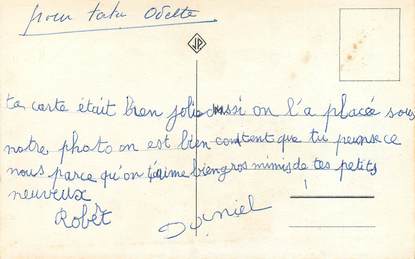 pour tata Odette
JP
ta carte était bien jolie aussi on l'a placée sous
notre photo on est bien content que tu pense ce
nous parce qu'on t'aime bien gros mimis de tes petits
neuveux
Robèt Daniel